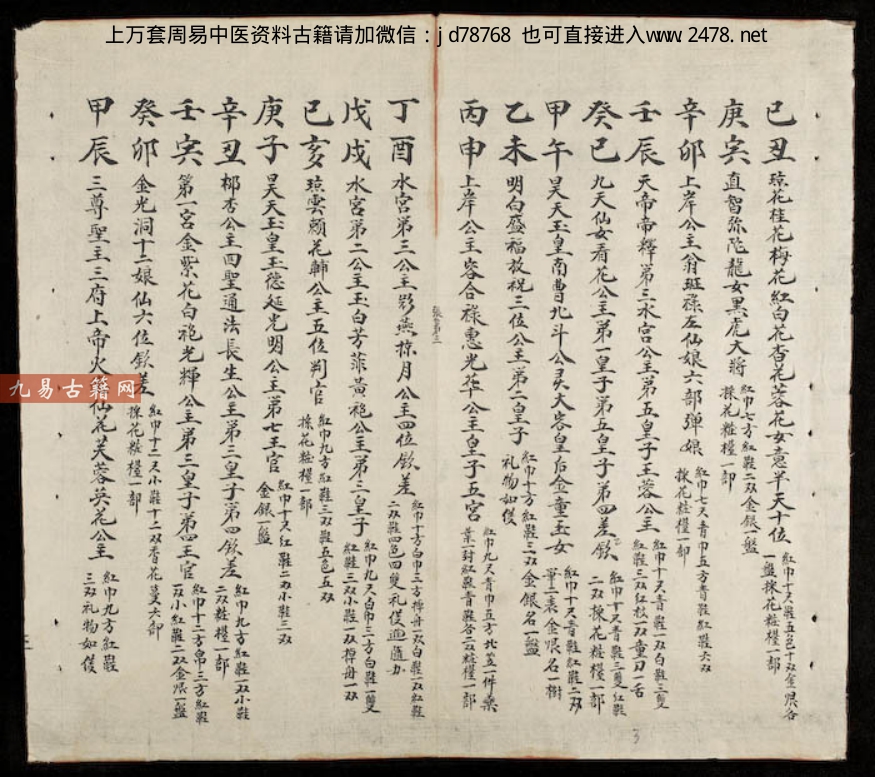 上万套周易中医资料古籍请加微信：jd78768 也可直接进入www.2478.net
己丑 琼花桂花梅花紅白花杏花蓉花女意半天十位 紅巾十尺紅鞋五色十双金銀各一盤採花粧糧一部
庚寅 直智弥陀龍女黑虎大將 紅巾七方紅鞋二双金銀一盤採花粧糧一部
辛卯 上岸公主翁班祿左仙娘六部弹娘 紅巾七尺青巾五方青鞋紅鞋六双採花粧糧一部
壬辰 天帝帝釋第三水宮公主第五皇子王蓉公主 紅巾十尺青鞋一双白鞋三隻
癸巳 九天仙女看花公主第一皇子第五皇子第四差欽 紅巾十尺青鞋三隻紅鞋二双採花粧糧一部
甲午 昊天玉皇南曹北斗公灵大容皇后金童玉女 紅巾十尺青鞋紅鞋二双
乙未 明向盛福放祝三位公主第二皇子 紅巾十方紅鞋三双金銀名一盤礼物如後
丙申 上岸公主容合祿惠光華公主皇子五宮 紅巾九尺青巾五方
丁酉 水宮第三公主影燕掠月公主四位欽差 紅巾十方白巾三方
戊戌 水宮第二公主玉白芳菲黃袍公主第三皇子 紅巾九尺白巾三方白鞋一隻紅鞋三双小鞋一双
己亥 琼雲頼花輔公主五位判官 紅巾九方紅鞋三双鞋五色五双採花粧糧一部
庚子 昊天玉皇玉德延光明公主第七王官 紅巾十尺紅鞋二双小鞋三双金銀一盤
辛丑 柳杏公主四聖通法長生公主第三皇子第四欽差 紅巾九方紅鞋一双小鞋二双粧糧一部
壬寅 第一宮金紫花白袍光輝公主第三皇子第四王官 紅巾十二方帛三方紅鞋一双小紅鞋二双金銀一盤
癸卯 金光洞十二娘仙六位欽差 紅巾十二尺小鞋十二双香花採花粧糧一部
甲辰 三尊聖主三府上帝火 仙花芙蓉英花公主 紅巾九方紅鞋三双礼物如後
九易古籍网
3